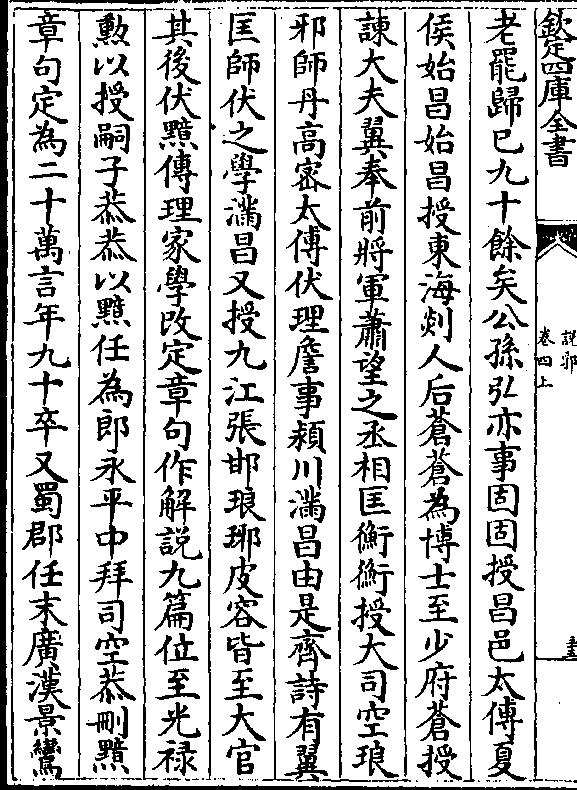 欽定四庫全書
說郛
卷四上
老罷歸已九十餘矣公孫弘亦事固固授昌邑太傅夏
侯始昌始昌授東海剡人后蒼蒼為博士至少府蒼授
諫大夫翼奉前將軍蕭望之丞相匡衡衡授大司空琅
邪師丹高密太傅伏理詹事潁川滿昌由是齊詩有翼
匡師伏之學滿昌又授九江張邯琅琊皮容皆至大官
其後伏黯傳理家學改定章句作解說九篇位至光祿
勲以授嗣子恭恭以黯任為郎永平中拜司空恭刪黯
章句定為二十萬言年九十卒又蜀郡任末廣漢景鸞